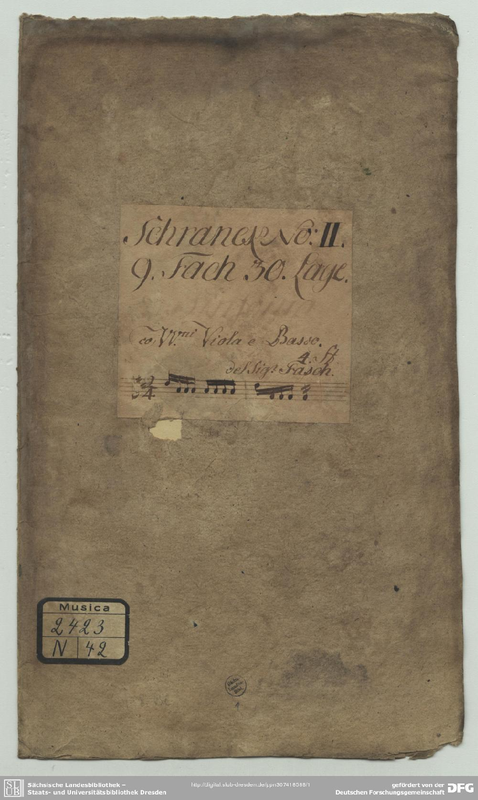 Schranck No: II.
9. Fach 30. Lage.
co VV.ni Viola e Basso.
4. St
del Sigr Fasch.
Musica
2423
N 42
Sächsische Landesbibliothek –
Staats- und Universitätsbibliothek Dresden
gefördert von der
Deutschen Forschungsgemeinschaft
DFG